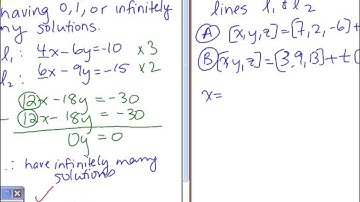 having 0, 1, or infinitely
ny solutions.
l₁: 4x-6y=-10 ×3
l₂: 6x-9y=-15 ×2
12x-18y = -30
12x-18y = -30
0y = 0
∴ have infinitely many
solutions
lines l₁ & l₂
A [x,y,z]=[7,2,-6]+
B [x,y,z]=[3,9,13]+t(
x=